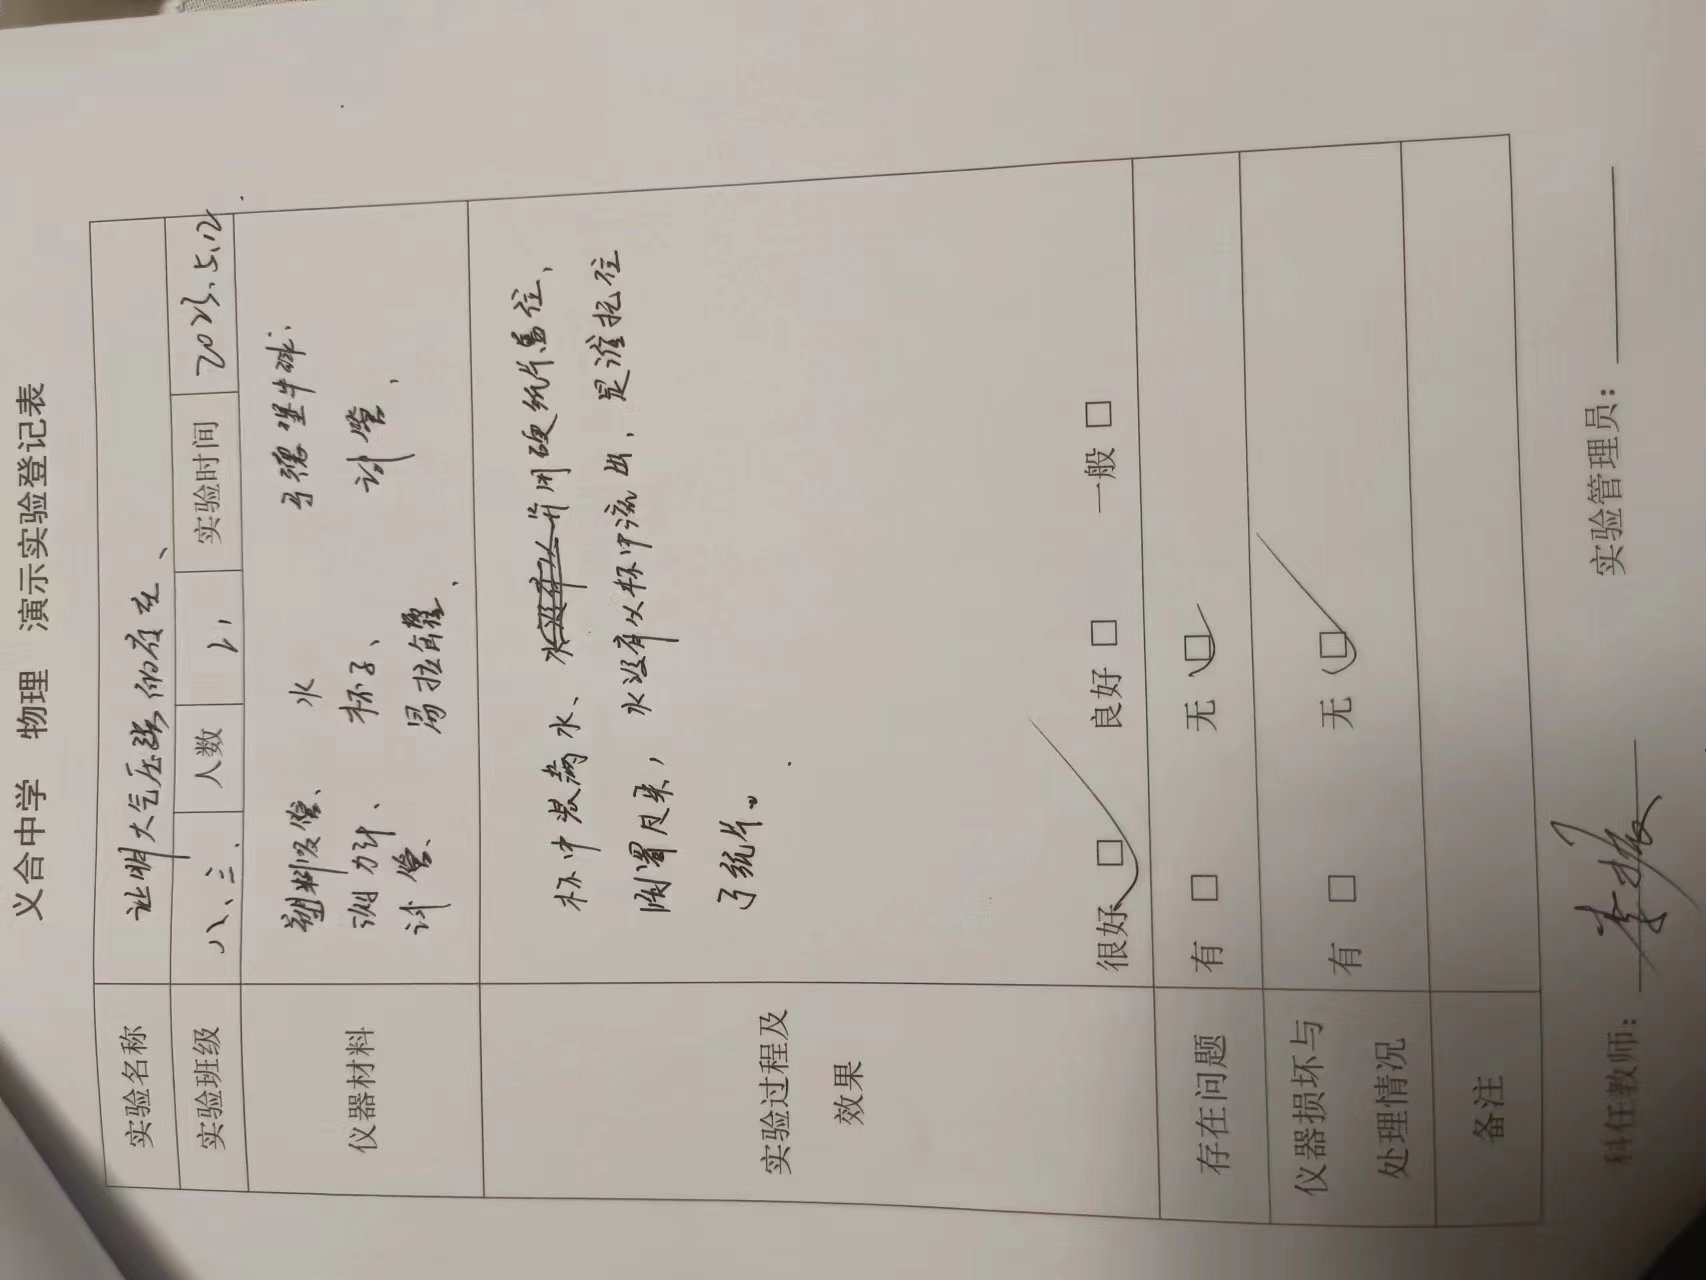 义合中学 物理 演示实验登记表
实验名称 证明大气压强的存在、
实验班级 八、三. 人数 21 实验时间 2023.5.12
仪器材料 塑料吸管、 水 马德堡半球:
测力计、 杯子、 试管,
试管、 易拉罐、
实验过程及 效果
杯中装满水、 用硬纸片盖住、
倒置足来, 水没有从杯中流出, 是谁托住
了纸片。
很好 □ 良好 □ 一般 □
存在问题 有 □ 无 □
仪器损坏与 处理情况 有 □ 无 □
备注
科任教师: 李 实验管理员: